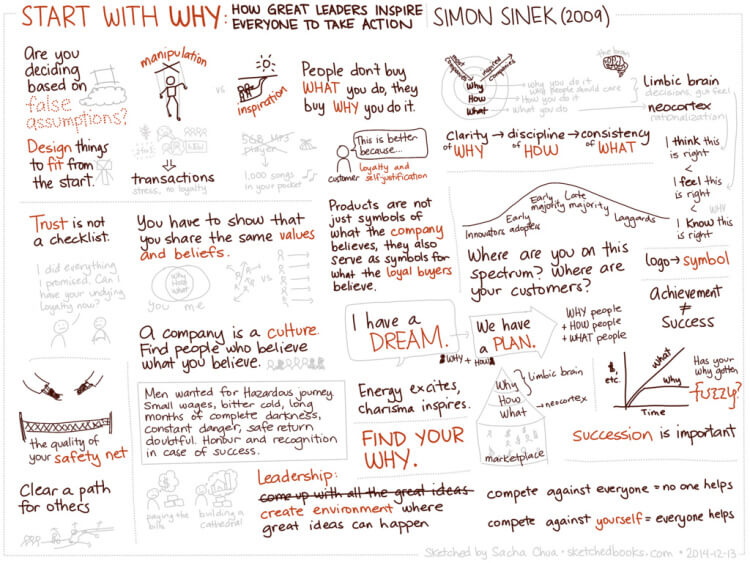 START WITH WHY: HOW GREAT LEADERS INSPIRE
EVERYONE TO TAKE ACTION
SIMON SINEK (2009)
Are you
deciding
based on
false
assumptions?
Design things
to fit from
the start.
manipulation
vs
inspiration
transactions
stress, no loyalty
player
1,000 songs
in your pocket
People don't buy
WHAT you do, they
buy WHY you do it.
This is better
because...
customer
loyalty and
self-justification
most
companies
inspired
companies
Why
How
What
why you do it
why people should care
How you do it
What you do
the brain
limbic brain
decisions, gut feel
neocortex
rationalization
Clarity → discipline → consistency
of WHY of HOW of WHAT
I think this
is right
<
I feel this
is right
< WHY
I know this
is right
Trust is not
a checklist.
I did everything
I promised. Can I
have your undying
loyalty now?
You have to show that
you share the same values
and beliefs.
Why
How
What
you me
vs.
Products are not
just symbols of
what the company
believes, they also
serve as symbols for
what the loyal buyers
believe.
Innovators
Early
adopters
Early
majority
Late
majority
Laggards
Where are you on this
spectrum? Where are
your customers?
logo → symbol
Achievement
≠
Success
A company is a culture.
Find people who believe
what you believe.
I have a
DREAM.
WHY + HOW
We have
a PLAN.
WHY people
+ HOW people
+ WHAT people
the quality of
your safety net
Men wanted for Hazardous journey.
Small wages, bitter cold, long
months of complete darkness,
constant danger, safe return
doubtful. Honour and recognition
in case of success.
Energy excites,
charisma inspires.
Why
How
What
limbic brain
neocortex
marketplace
$,
etc.
What
Why
Time
Has your
why gotten
fuzzy?
FIND YOUR
WHY.
Succession is important
Clear a path
for others
paying the
bills
building a
cathedral
Leadership:
come up with all the great ideas
create environment where
great ideas can happen
compete against everyone = no one helps
compete against yourself = everyone helps
Sketched by Sacha Chua • sketchedbooks.com • 2014-12-13